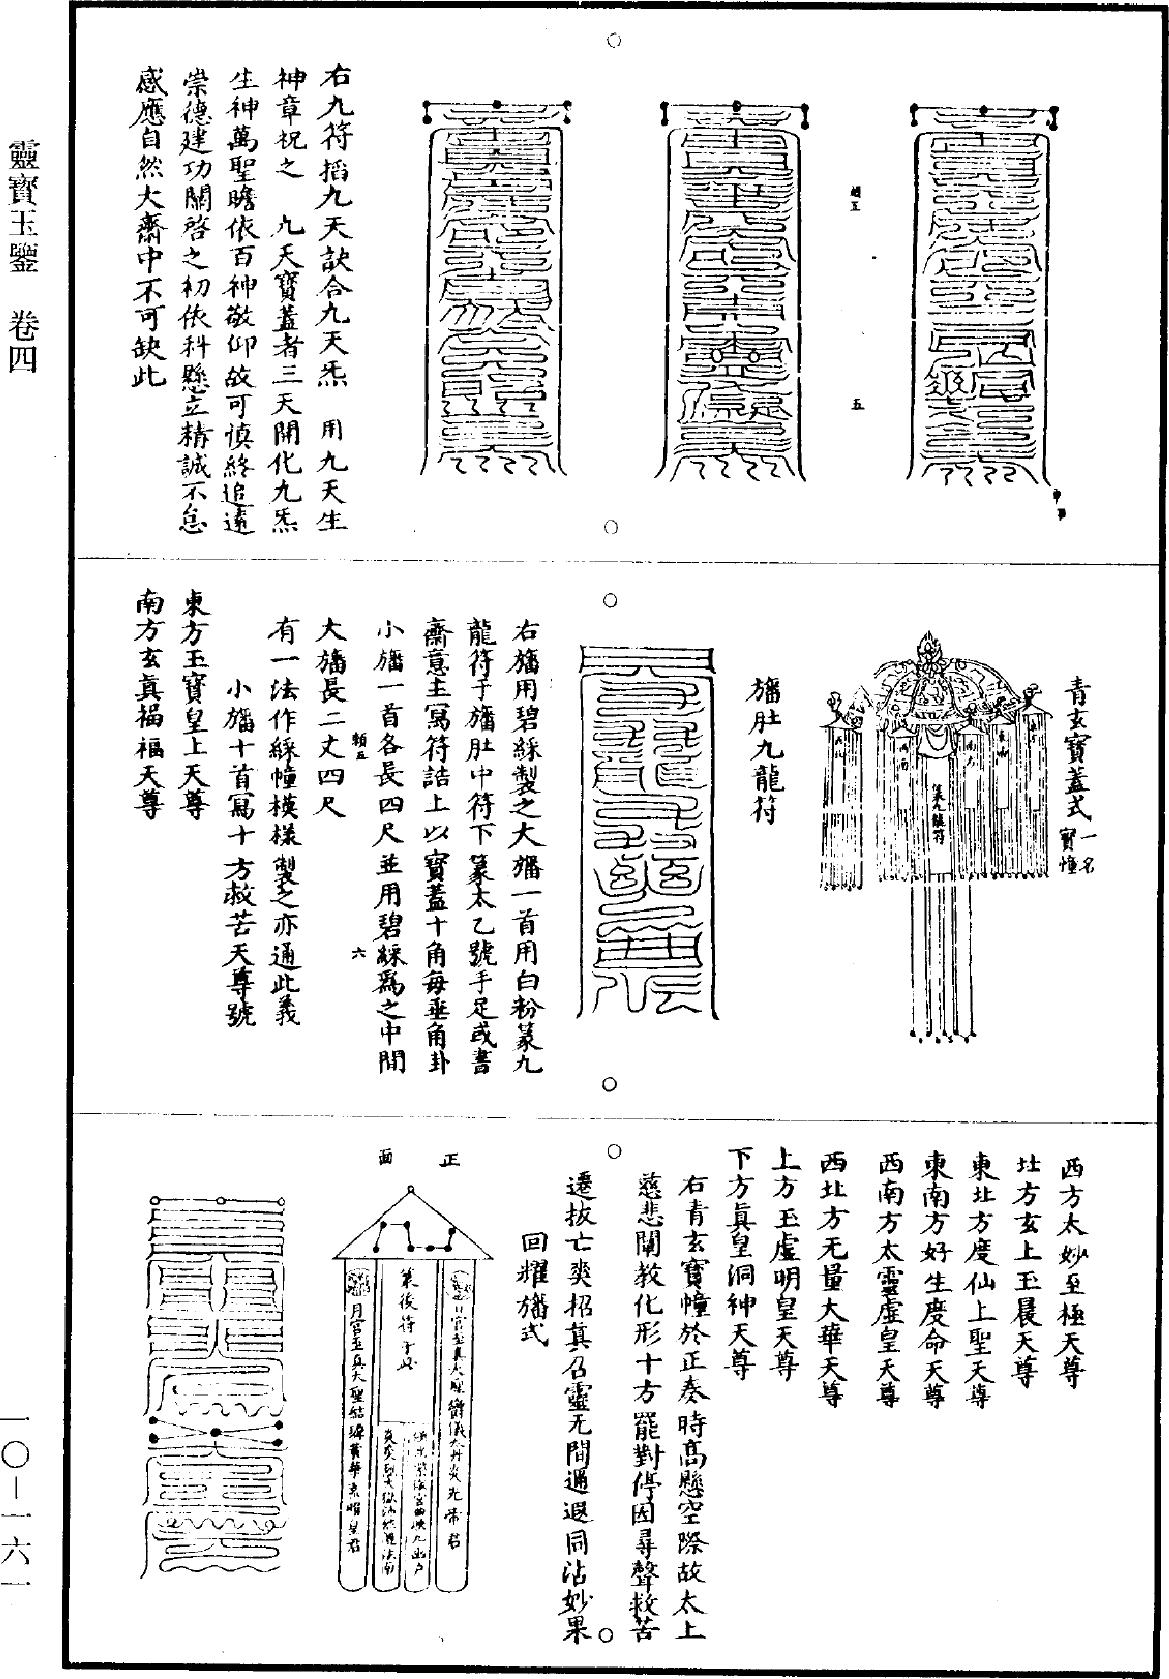 靈寶玉鑒　卷四
右九符搯九天訣合九天炁　用九天生
神章祝之　九天寶蓋者三天開化九炁
生神萬聖瞻依百神敬仰故可慎終追遠
崇德建功關啓之初依科懸立精誠不怠
感應自然大齋中不可缺此
五
青玄寶蓋式一名寶幢
旛肚九龍符
右旛用碧綵製之大旛一首用白粉篆九
龍符于旛肚中符下篆太乙號手足或書
齋意主寫符誥上以寶蓋十角每垂角卦
小旛一首各長四尺並用碧綵爲之中間
六
大旛長二丈四尺
有一法作綵幢模樣製之亦通此義
小旛十首寫十方救苦天尊號
東方玉寶皇上天尊
南方玄真福福天尊
西方太妙至極天尊
北方玄上玉晨天尊
東北方度仙上聖天尊
東南方好生度命天尊
西南方太靈虛皇天尊
西北方无量大華天尊
上方玉虛明皇天尊
下方真皇洞神天尊
右青玄寶幢於正奏時高懸空際故太上
慈悲闡教化形十方罷對停因尋聲救苦
遷拔亡爽招真召靈无間遐邇同沾妙果
回耀旛式
正面
篆後符于此
月宮至真大聖結璘黃華素曜皇君
一〇—一六一